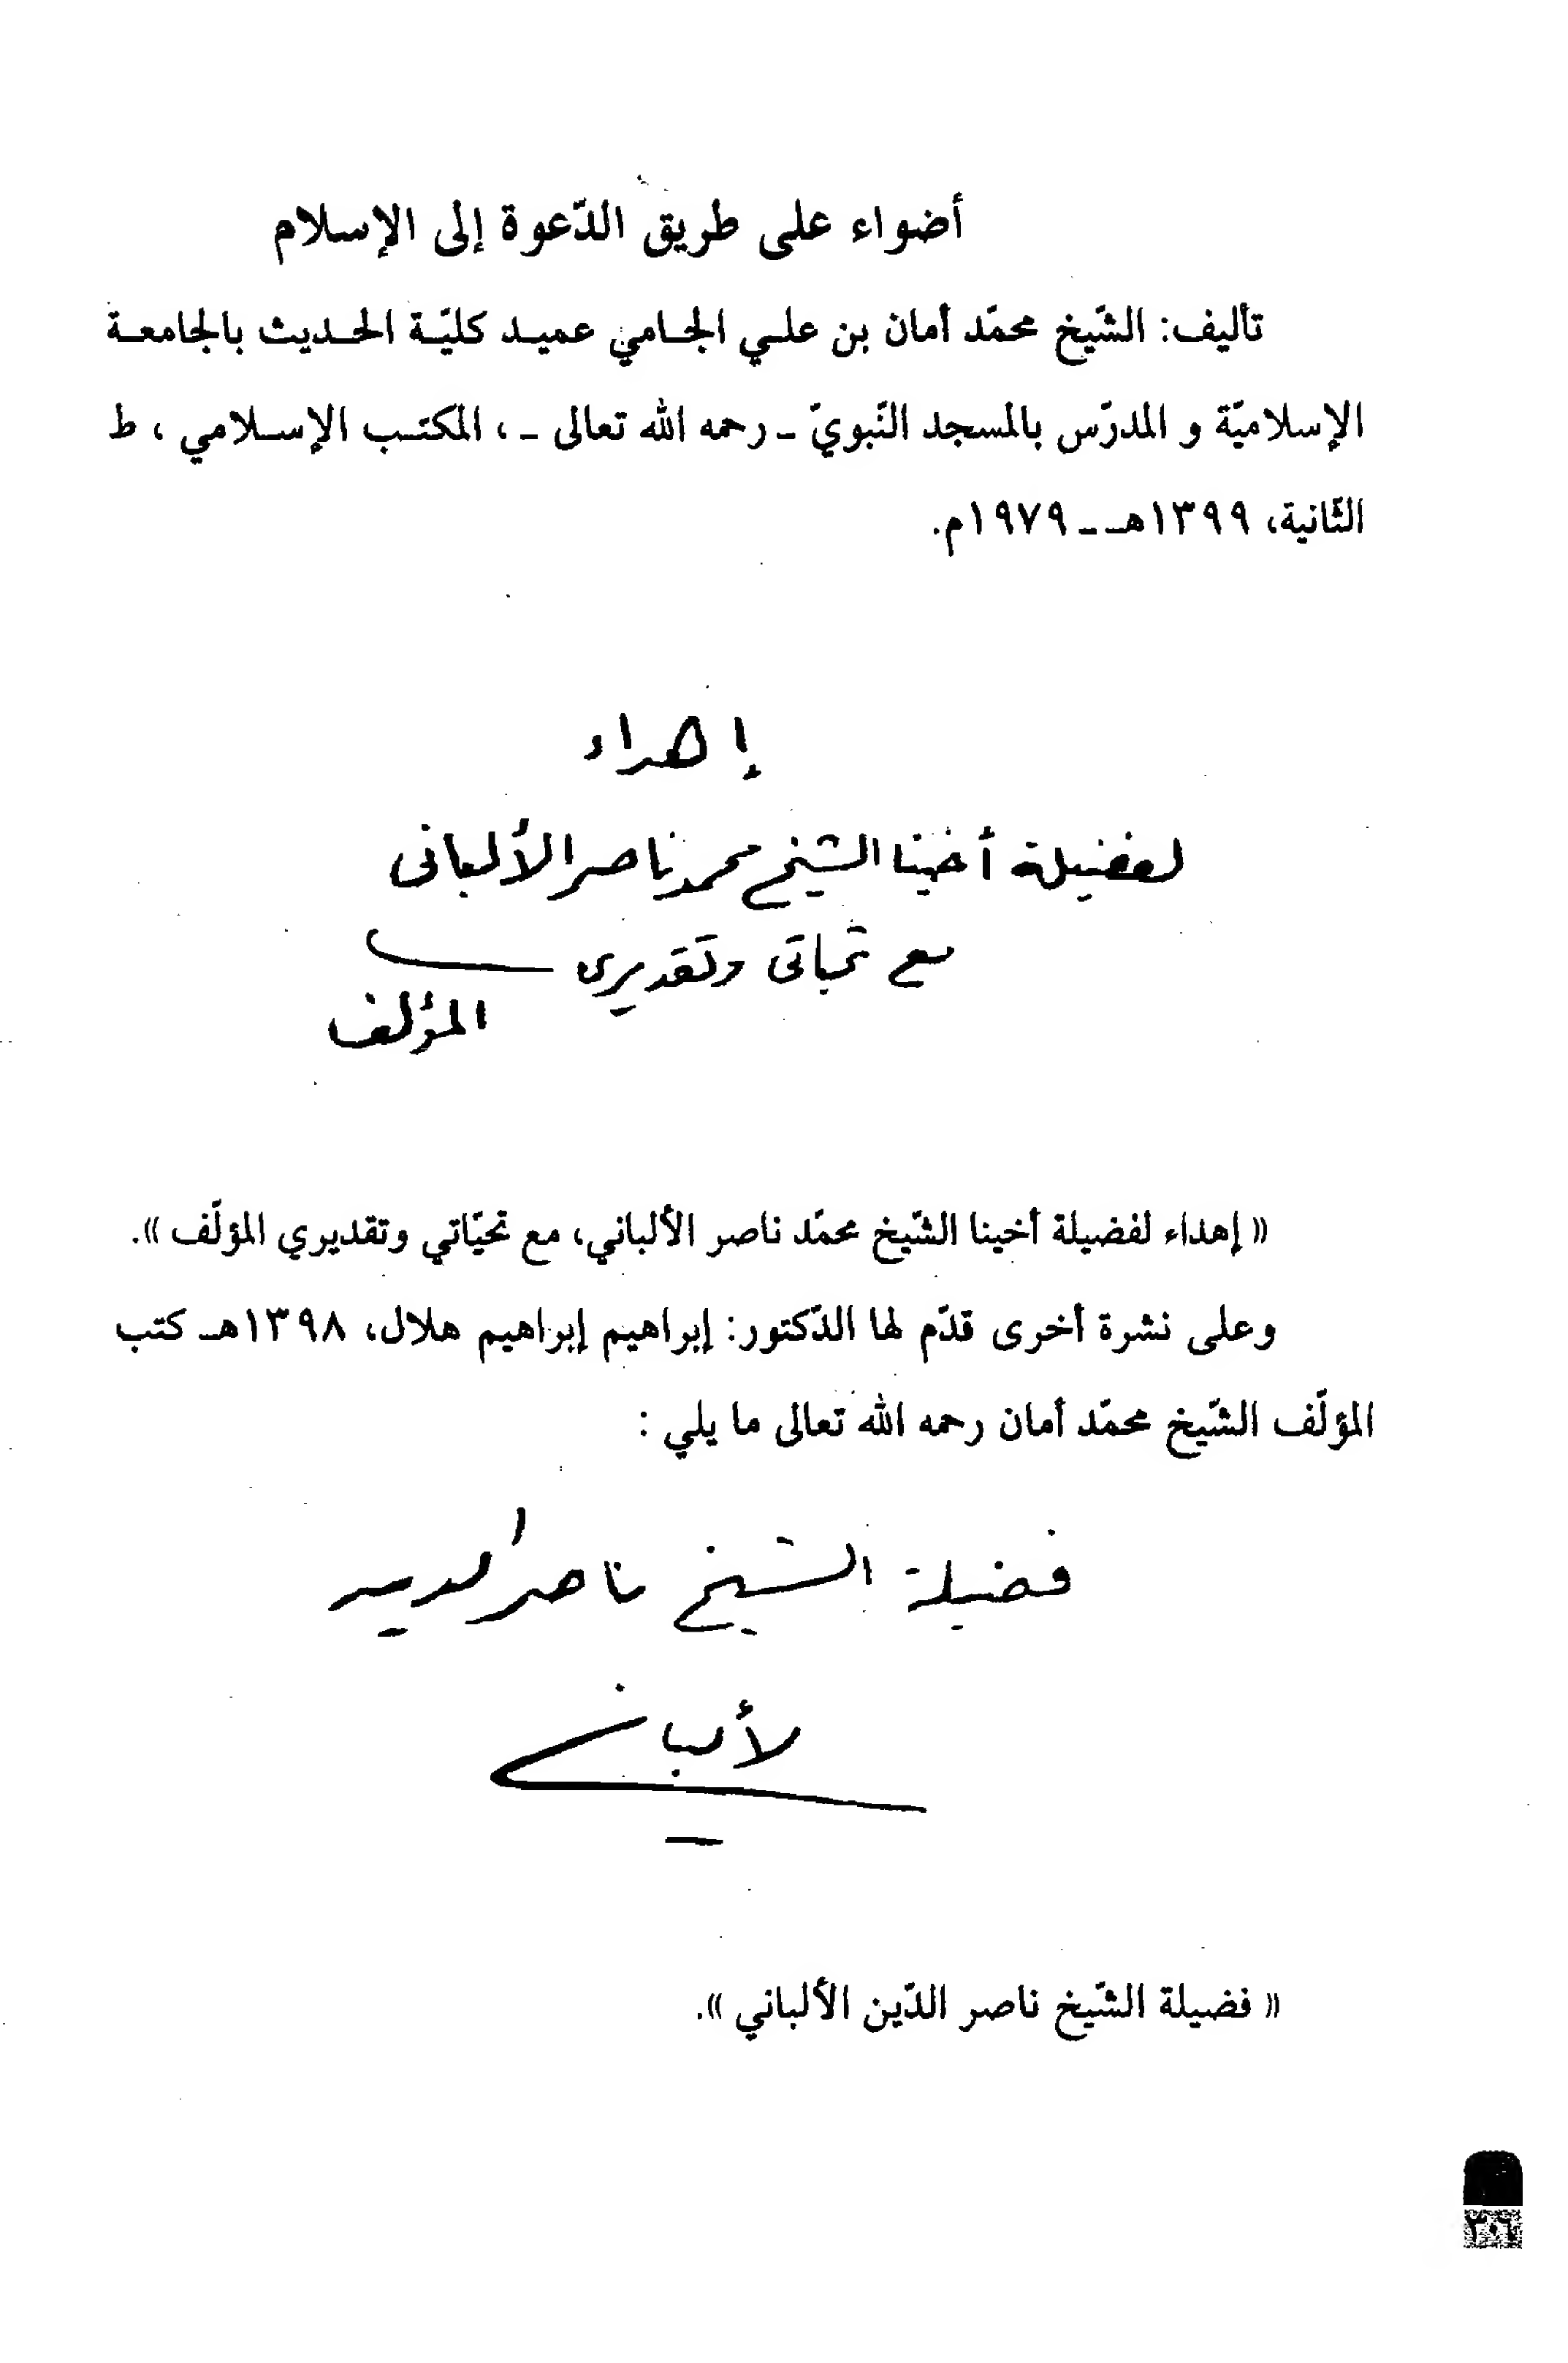 أضواء على طريق الدّعوة إلى الإسلام
تأليف: الشّيخ محمّد أمان بن علي الجامي عميد كليّة الحديث بالجامعة
الإسلاميّة و المدرّس بالمسجد النّبويّ ـ رحمه الله تعالى ـ، المكتب الإسلامي ، ط
الثّانية، ١٣٩٩هـ ـ ١٩٧٩م.
إهداء
لفضيلة أخينا الشيخ محمد ناصر الألبانى
مع تحياتى وتقديرى
المؤلف
« إهداء لفضيلة أخينا الشّيخ محمّد ناصر الألباني، مع تحيّاتي وتقديري المؤلّف ».
وعلى نشرة أخرى قدّم لها الدّكتور: إبراهيم إبراهيم هلال، ١٣٩٨هـ كتب
المؤلّف الشّيخ محمّد أمان رحمه الله تعالى ما يلي :
فضيلة الشيخ ناصر الدين
الألباني
« فضيلة الشّيخ ناصر الدّين الألباني ».
٣٠٦